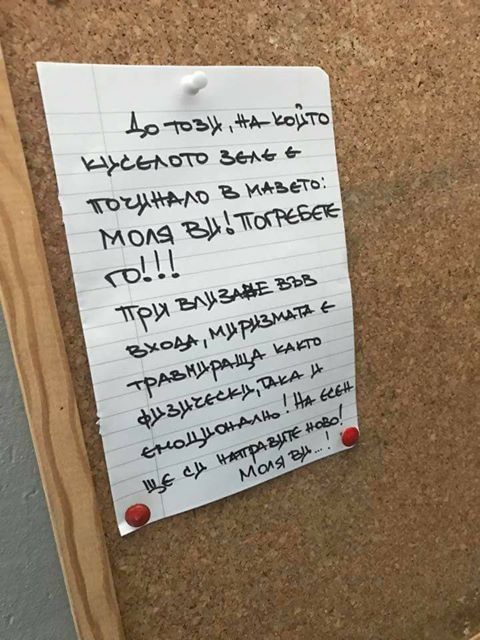 До този, на който
киселото зеле е
починало в мазето:
Моля Ви! Погребете
го!!!
При влизане във
входа, миризмата е
травмираща както
физически, така и
емоционално! На есен
ще си направите ново!
Моля Ви...!